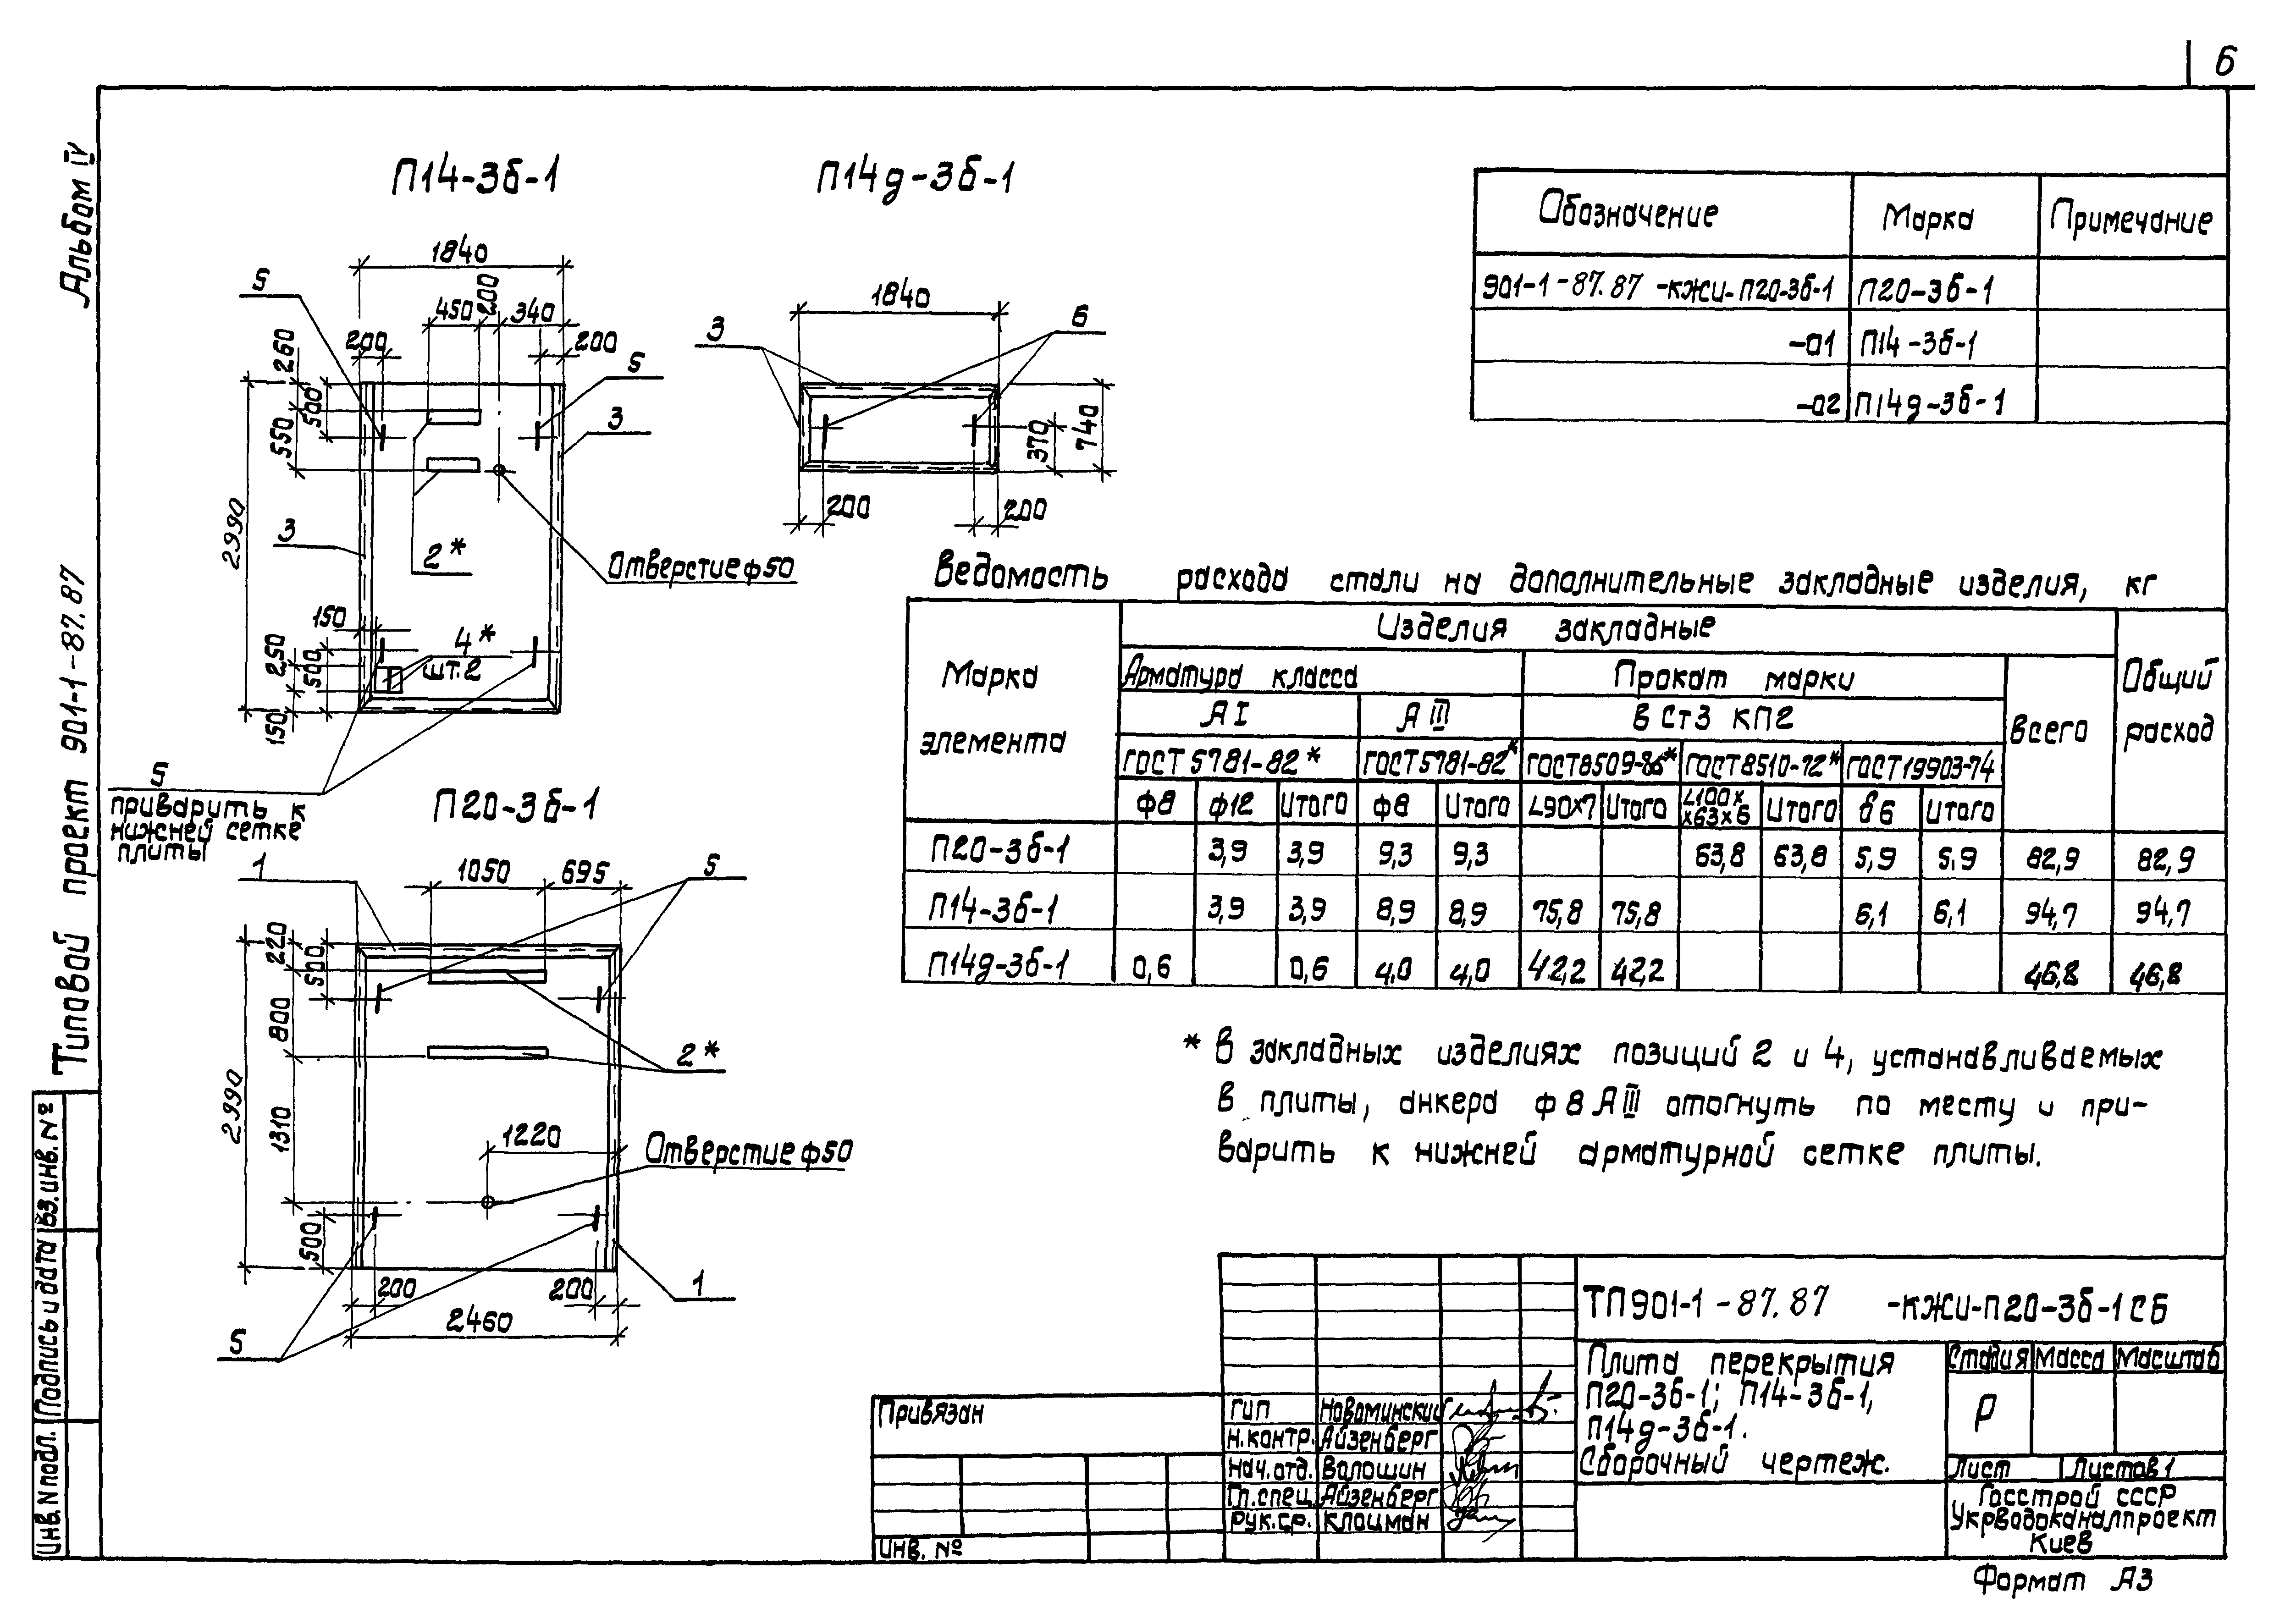 6
Альбом IV
Типовой проект 901-1-87.87
Инв.N подл. Подпись и дата Вз.инв.№
П14-3б-1
1840
450 200 340
200 200
5
5
3
3
260
500
550
2990
2*
Отверстие ф50
150
4*
шт.2
250
500
150
5
приварить к
нижней сетке
плиты
П14д-3б-1
1840
3
6
370
740
200 200
Обозначение Марка Примечание
901-1-87.87 -кжи-П20-3б-1 П20-3б-1
-01 П14-3б-1
-02 П14д-3б-1
Ведомость расхода стали на дополнительные закладные изделия, кг
Марка элемента Изделия закладные Общий расход
Арматура класса Прокат марки Всего
АI АIII ВСт3 КП2
ГОСТ 5781-82* ГОСТ5781-82* ГОСТ8509-86* ГОСТ8510-72* ГОСТ19903-74
ф8 ф12 Итого ф8 Итого L90х7 Итого L100х х63х6 Итого δ6 Итого
П20-3б-1 3,9 3,9 9,3 9,3 63,8 63,8 5,9 5,9 82,9 82,9
П14-3б-1 3,9 3,9 8,9 8,9 75,8 75,8 6,1 6,1 94,7 94,7
П14д-3б-1 0,6 0,6 4,0 4,0 42,2 42,2 46,8 46,8
* В закладных изделиях позиций 2 и 4, устанавливаемых
в плиты, анкера ф8АIII отогнуть по месту и при-
варить к нижней арматурной сетке плиты.
П20-3б-1
1
1050 695
5
220
500
800
2990
1310
2*
1220
Отверстие ф50
500
200 200
1
5
2460
Привязан
Инв. №
ГИП Новоминский
Н.контр. Айзенберг
Нач.отд. Волошин
Гл.спец. Айзенберг
Рук.гр. Клоцман
ТП901-1-87.87 -кжи-П20-3б-1СБ
Плита перекрытия
П20-3б-1; П14-3б-1,
П14д-3б-1.
Сборочный чертеж.
Стадия Масса Масштаб
Р
Лист Листов 1
Госстрой СССР
Укрводоканалпроект
Киев
Формат А3